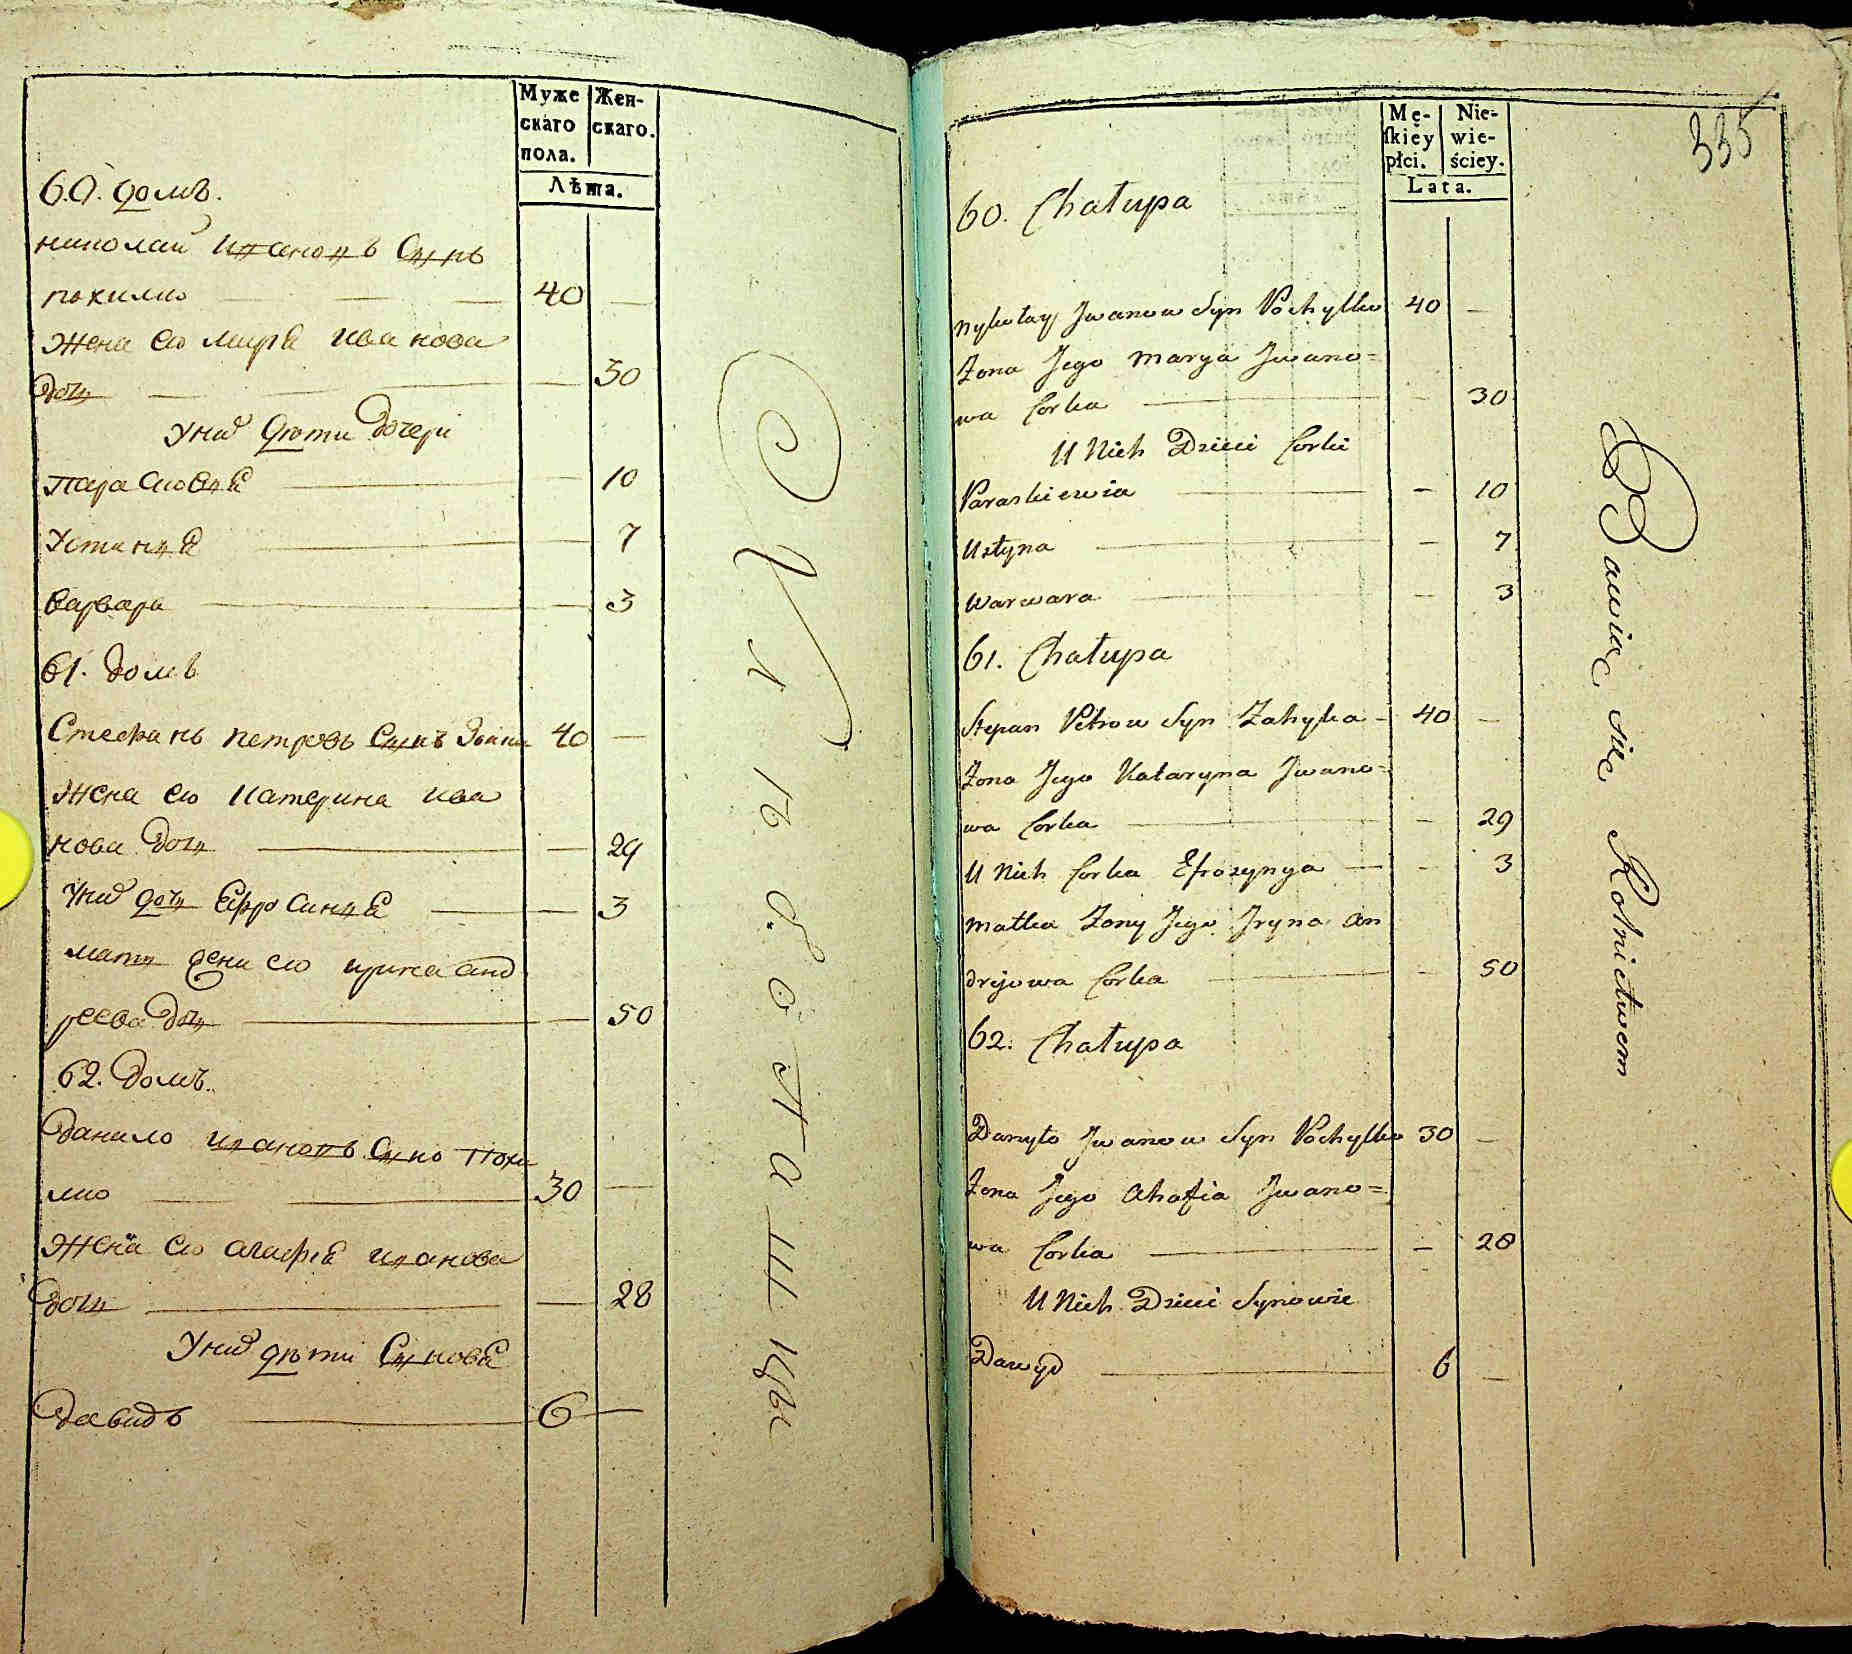 Муже
скаго
пола.
Жен-
скаго.
Лѣта.
60. домъ.
николай ивановъ Сынъ
похилко 40 —
жена его мариа ива нова
дочь — 30
У нихъ дѣти дочери
парасковиа — 10
Устиниа — 7
варвара — 3
61. домъ
Стефанъ петровъ Сынъ 40 —
жена его катерина ива
нова дочь — 29
У нихъ дочь Ефросиниа — 3
мать жени его ирина анд
реева дочь — 50
62. домъ.
данило ивановъ Сынъ похи
лко 30 —
жена его агафиа иванова
дочь — 28
У нихъ дѣти Синовиа
давидъ 6 —
Хлѣбопашцы
335
Mę-
ſkiey
płci.
Nie-
wie-
ściey.
Lata.
60. Chałupa
Nykołay Jwanow Syn Pochylko 40 —
Żona Jego Marya Jwano=
wa Corka — 30
U Nich Dzieci Corki
Paraskiewia — 10
Ustyna — 7
Warwara — 3
61. Chałupa
Stepan Petrow Syn Zahyka - 40 —
Żona Jego Kataryna Jwano=
wa Corka — 29
U Nich Corka Efrozynya — 3
Matka Żony Jego Jryna An
drijowa Corka — 50
62. Chałupa
Danyło Jwanow Syn Pochylko 30 —
Żona Jego Ahafia Jwano=
wa Corka — 28
U Nich Dzieci Synowie
Dawyd 6 —
Bawiąc się Rolnictwem